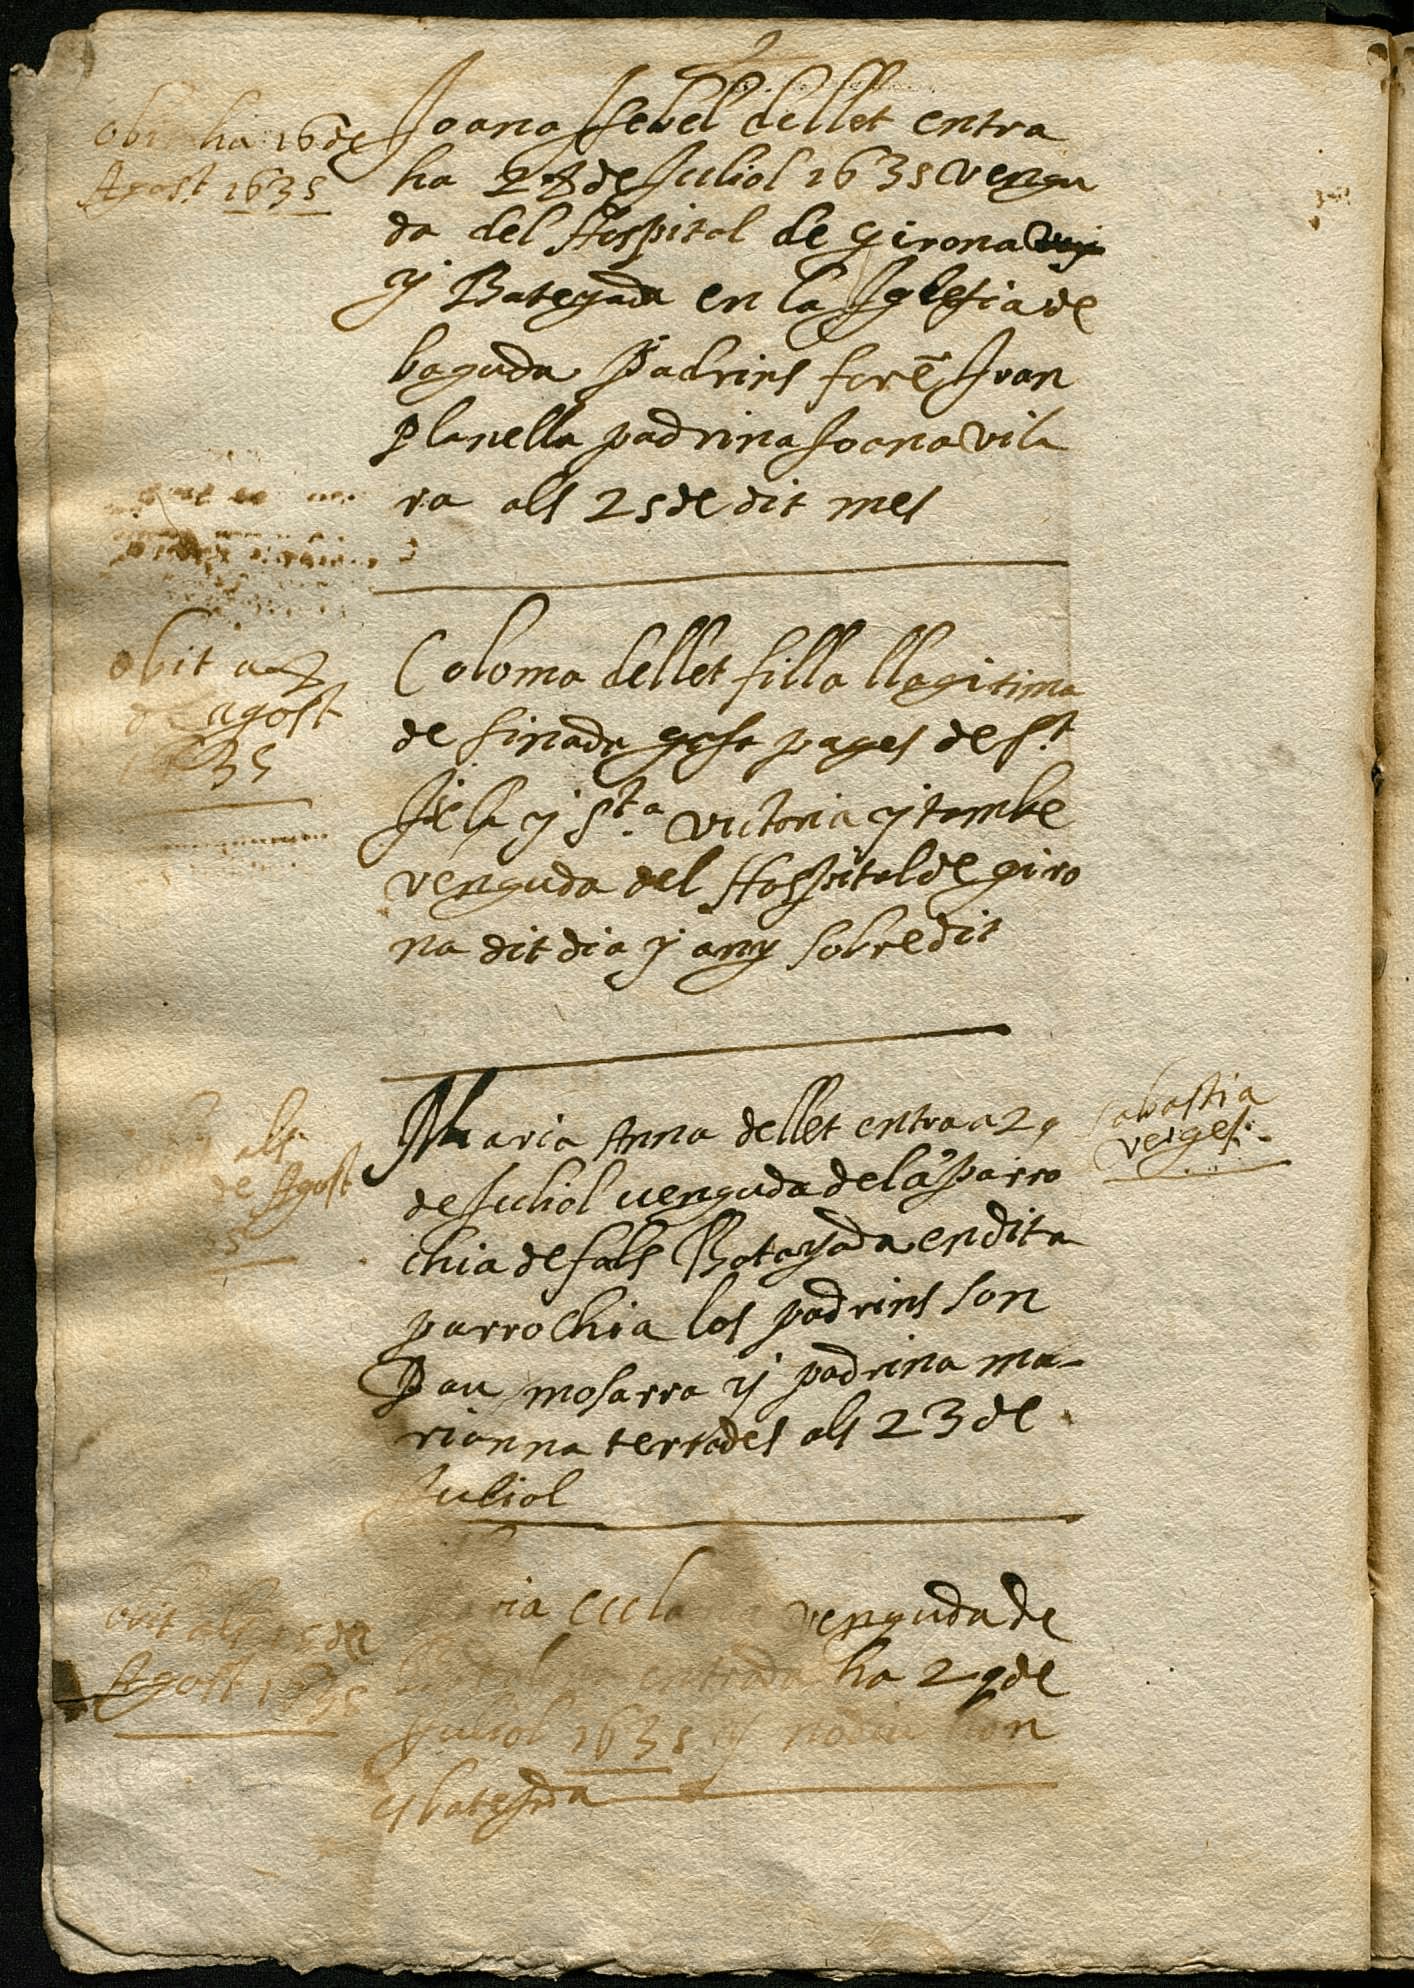 obit ha 16 de
Agost 1635
Joana Isebel dellet entra
ha 27 de Juliol 1635 vengu
da del Hospital de Girona
y Bategada en la Iglesia de
baguda Padrins forē Juan
Planella padrina Joana vila
ra als 25 de dit mes
obit a 7
de agost
1635
Coloma dellet filla llagitima
de pages de St
y Sta victoria y tambe
venguda del Hospital de giro
na dit dia y any sobredit
als
de Agost
35
Maria Anna dellet entra a 29
de Juliol uenguda de la Parro
chia de sals Batayada en dita
parrochia los padrins son
Pau mosarra y padrina ma-
rianna terrades als 23 de
Juliol
sabastia
verges
obit als 15 de
Agost 1635
venguda de
entrada ha 29 de
Juliol 1635 y no diu hon
es bateyada